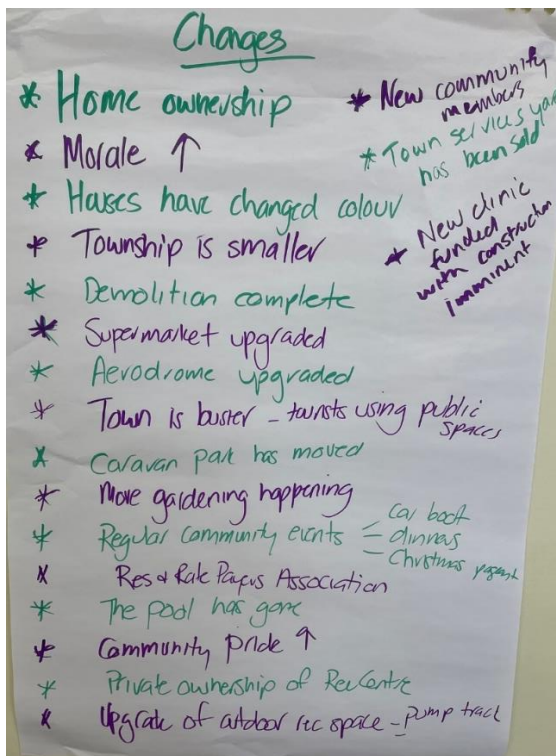 Changes
* Home ownership
* Morale ↑
* Houses have changed colour
* Township is smaller
* Demolition complete
* Supermarket upgraded
* Aerodrome upgraded
* Town is buster - tourists using public
spaces
* Caravan park has moved
* More gardening happening
* Regular Community events - Car boot
- dinners
- Christmas pageant
* Res & Rate Payers Association
* The pool has gone
* Community pride ↑
* Private ownership of Rec Centre
* Upgrate of outdoor rec space - pump track
* New community
members
* Town services yard
has been sold
* New clinic
funded
with construction
imminent